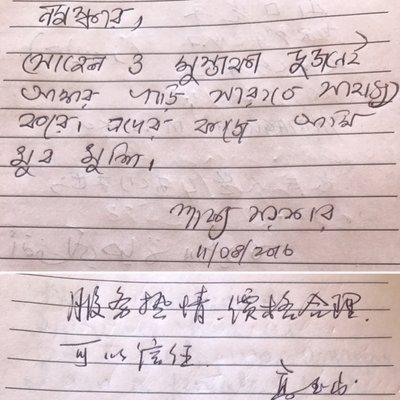 নমস্কার,
সোহেল ও মুস্তাফা দুজনেই
আমার গাড়ি সারাতে সাহায্য
করে। এদের কাজে আমি
খুব খুশি।
সরকার
11/08/2016
服务热情.價格合理.
可以信任